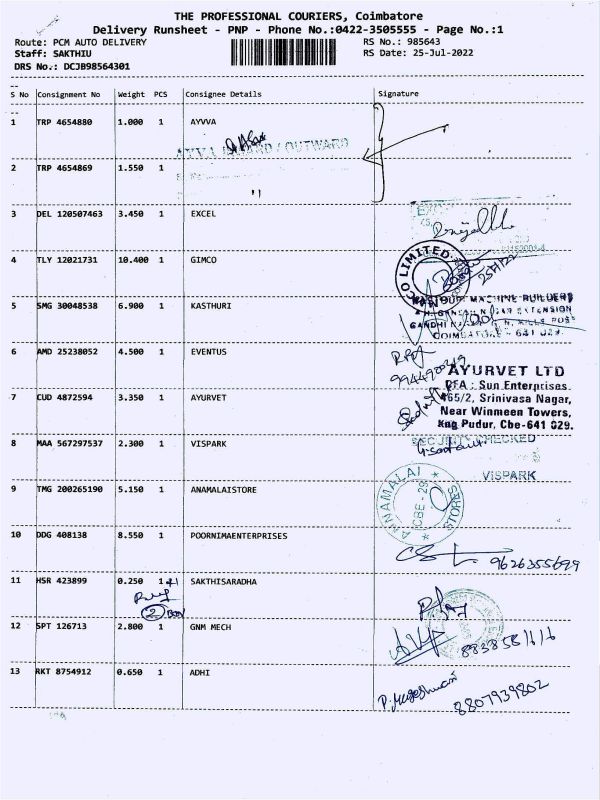 THE PROFESSIONAL COURIERS, Coimbatore
Delivery Runsheet - PNP - Phone No.:0422-3505555 - Page No.:1
Route: PCM AUTO DELIVERY RS No.: 985643
Staff: SAKTHIU RS Date: 25-Jul-2022
DRS No.: DCJB98564301
--
S No Consignment No Weight PCS Consignee Details Signature
--
1 TRP 4654880 1.000 1 AYVVA
INWARD / OUTWARD
2 TRP 4654869 1.550 1
"
3 DEL 120507463 3.450 1 EXCEL
4 TLY 12021731 10.400 1 GIMCO
CO LIMITED
25/7/22
5 SMG 30048538 6.900 1 KASTHURI
MACHINE BUILDERS
EXTENSION
GANDHI
COIMBATORE - 641 029.
6 AMD 25238052 4.500 1 EVENTUS
AYURVET LTD
7 CUD 4872594 3.350 1 AYURVET
CFA : Sun Enterprises.
465/2, Srinivasa Nagar,
Near Winmeen Towers,
Kng Pudur, Cbe-641 029.
8 MAA 567297537 2.300 1 VISPARK
SECURITY CHECKED
VISPARK
9 TMG 200265190 5.150 1 ANAMALAISTORE
ANNAMALAI STORES
CBE - 29
10 DDG 408138 8.550 1 POORNIMAENTERPRISES
9626355699
11 HSR 423899 0.250 1 +1 SAKTHISARADHA
2 Box
12 SPT 126713 2.800 1 GNM MECH
8838581616
13 RKT 8754912 0.650 1 ADHI
8807939802